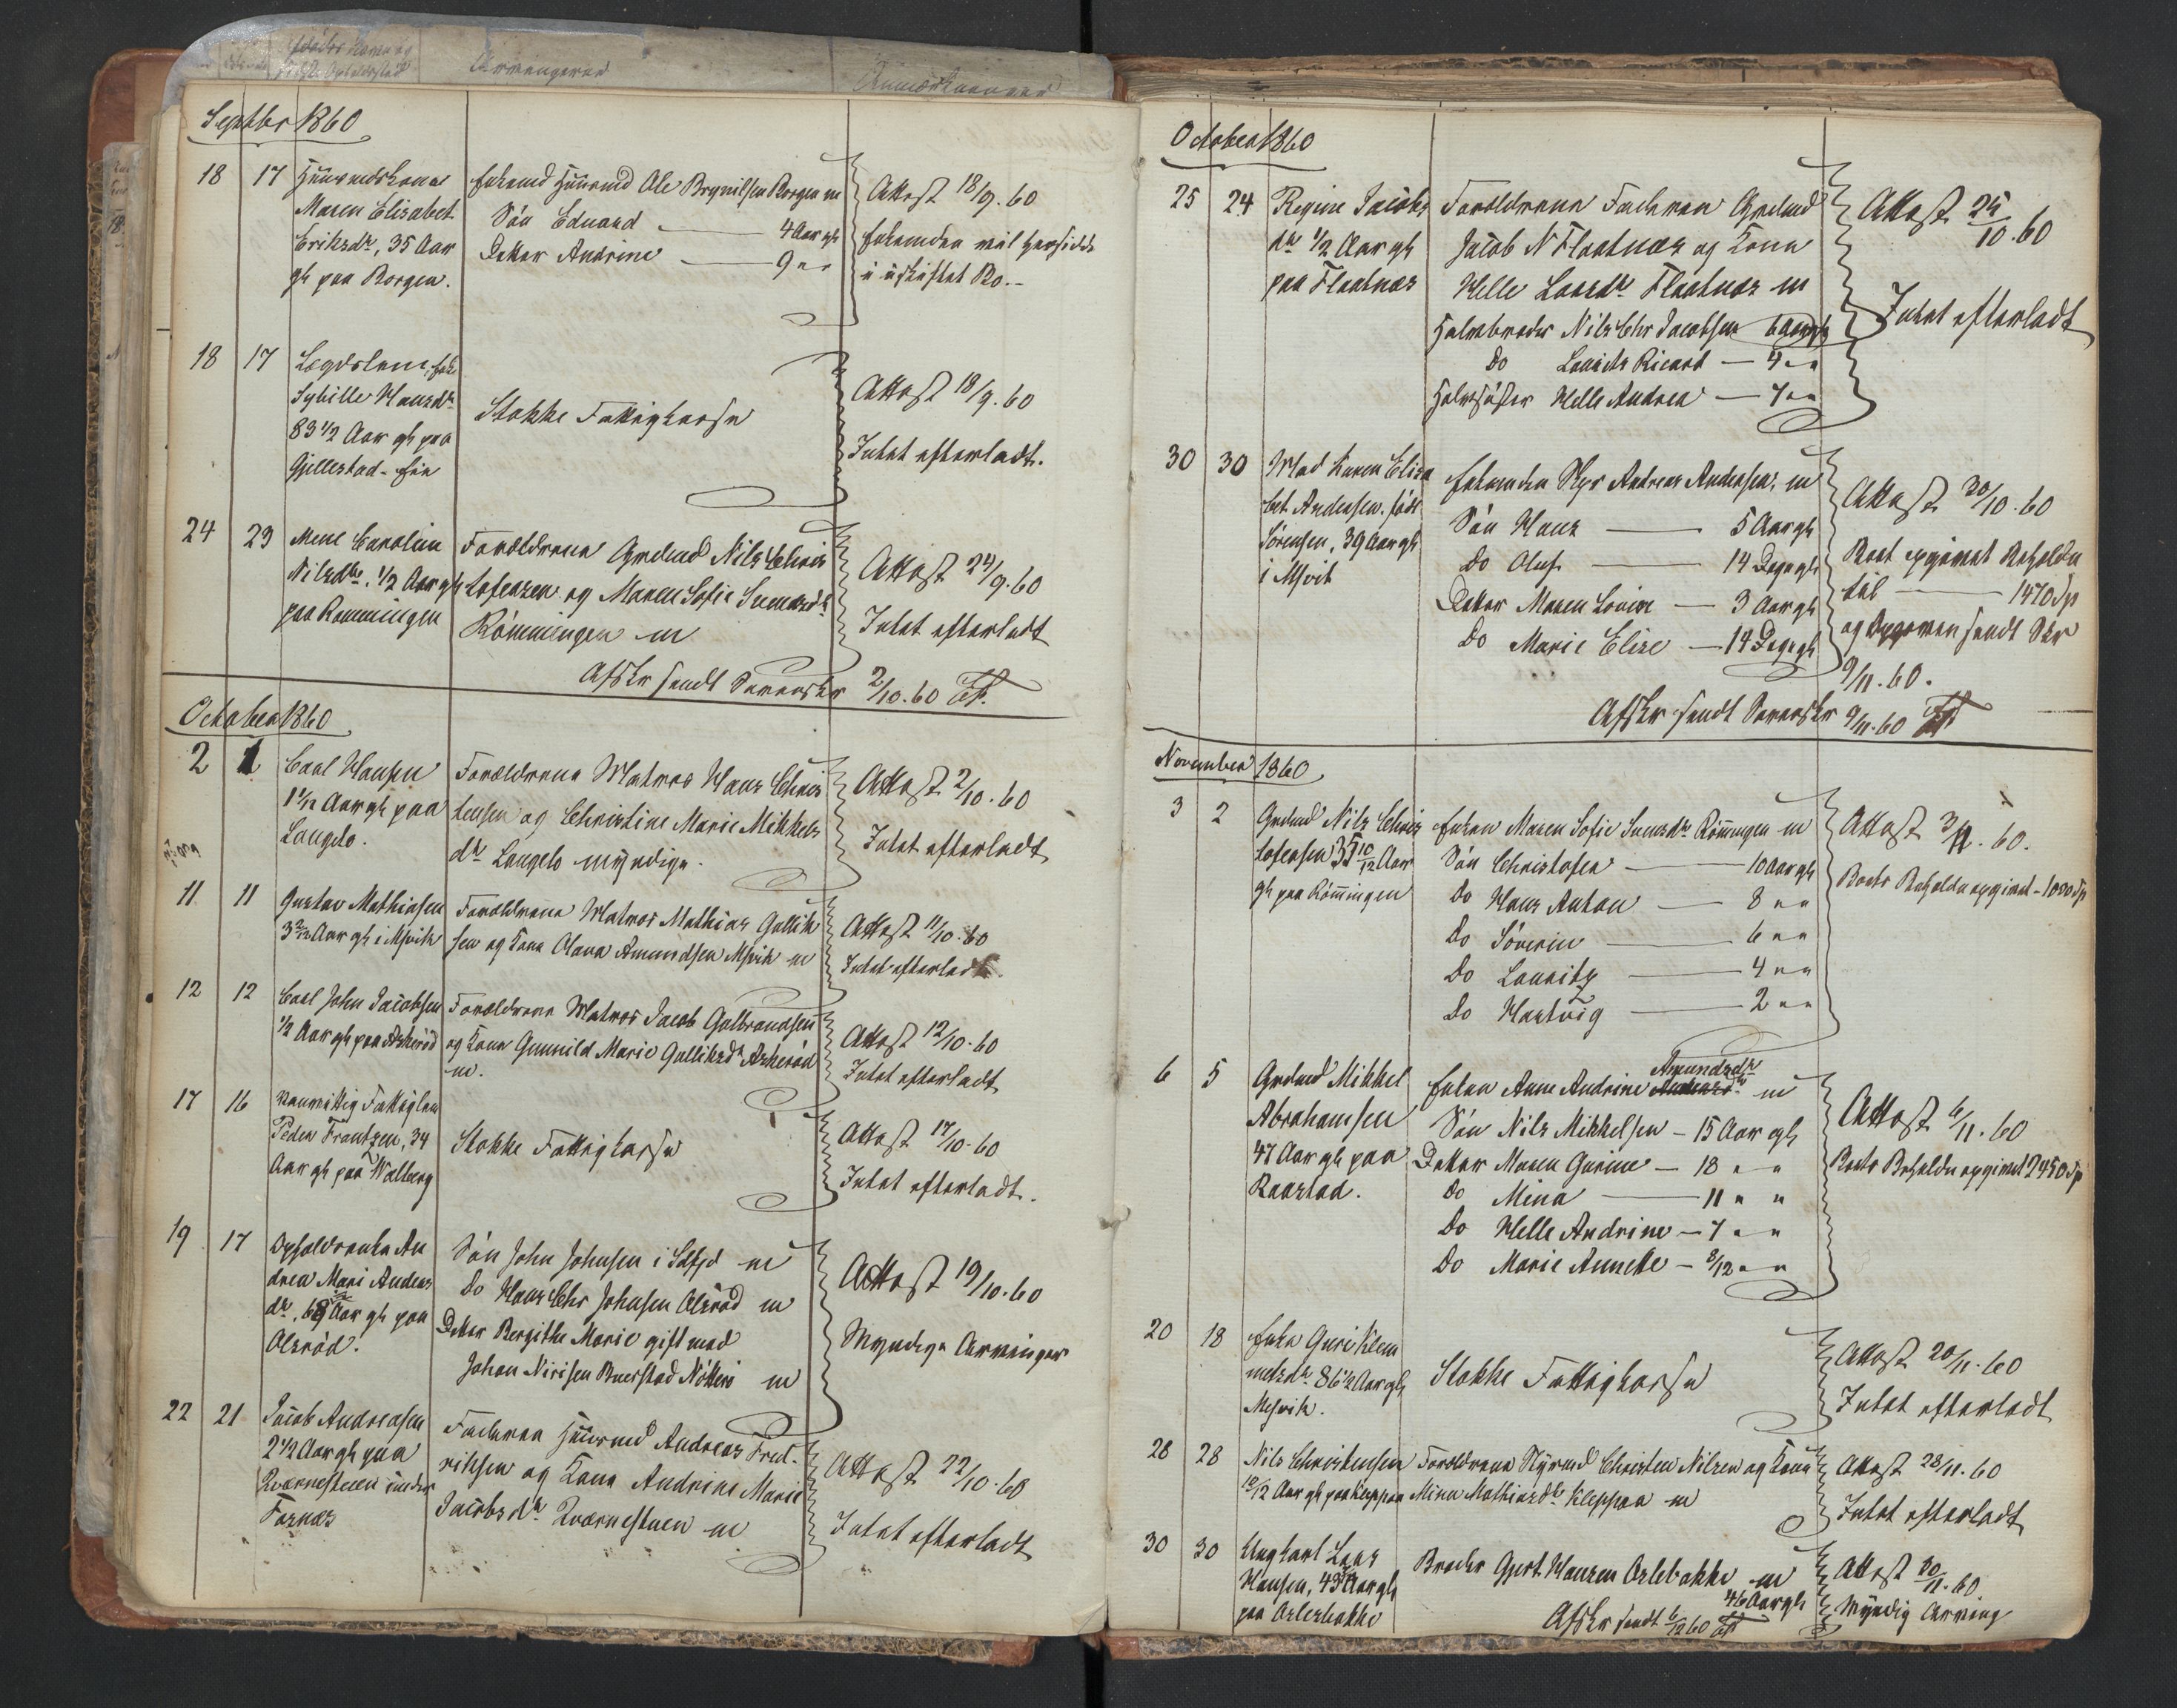 Arvingerne
Anmærkninger
Septbr 1860
18 17 Huusmdskone
Maren Elisabet
Eriksdr, 35 Aar
gl paa Borgen.
Enkemd Huusmd Ole Brynilsen Borgen m
Søn Eduard — 4 Aar gl
Datter Andrine — 9 " "
Attest 18/9. 60
Enkemden vil hensidde
i uskiftet Bo.-
18 17 Lægdslem, Enke
Sybille Hansdr
83 1/2 Aar gl paa
Gjellestad-
Stokke Fattigkasse
Attest 18/9. 60
Intet efterladt.
24 23 Mene Caroline
Nilsdtr, 1/2 Aar gl
paa Rømmingen
Forældrene Grdmd Nils Chris
tofersen og Maren Sofie Svendsdr
Rømmingen m
Attest 24/9. 60
Intet efterladt
Afskr sendt Sorenskr 2/10. 60
October 1860
2 1 Carl Hansen
1 1/12 Aar gl paa
Langelo.
Forældrene Matros Hans Chris
tensen og Christine Marie Mikkels
dr Langelo myndige.
Attest 2/10. 60
Intet efterladt
11 11 Gustav Mathiasen
3 2/12 Aar gl i Msvik
Forældrene Matros Mathias Gullik
sen og Kone Olava Amundsen Msvik m
Attest 11/10. 60
Intet efterladt.
12 12 Carl Johan Jacobsen
1/2 Aar gl paa Askerød
Forældrene Matros Jacob Gulbrandsen
og Kone Gunnild Marie Gulliksdr Askerød
m.
Attest 12/10. 60
Intet efterladt
17 16 Vanvittig Fattiglem
Peder Frantzen, 34
Aar gl paa Wølberg
Stokke Fattigkasse
Attest 17/10. 60
Intet efterladt.
19 17 Opholdsenke An
drea Mari Anders
dr, 68 Aar gl paa
Olsrød.
Søn John Johnsen i Sdfjd m
Do Hans Chr Johnsen Olsrød m
Datter Bergithe Marie gift med
Johan Nirisen Buerstad Nøtterø m
Attest 19/10. 60
Myndige Arvinger
22 21 Jacob Andreasen
2 1/2 Aar gl paa
Kværnestuen under
Fosnæs
Faderen Huusmd Andreas Fred-
riksen og Kone Andrine Marie
Jacobsdr Kværnestuen m
Attest 22/10. 60
Intet efterladt
October 1860
25 24 Regine Jacobs
dr 1/2 Aar gl
paa Flaatnæs
Forældrene Faderen Grdmd
Jacob N Flaatnæs og Kone
Helle Larsdr Flaatnæs m
Halvbroder Nils Chr Jacobsen 6 Aar gl
Do Laurits Ricard — 4 " "
Halvsøster Helle Andrea — 7 " "
Attest 25/10. 60
Intet efterladt
30 30 Mad Karen Elisa
bet Andersen, fød
Sørensen, 39 Aar gl
i Msvik
Enkemden Skpr Andreas Andersen, m
Søn Hans — 5 Aar gl
Do Oluf — 14 Dage gl
Datter Maren Lovise — 3 Aar gl
Do Marie Elise — 14 Dage gl
Attest 30/10. 60
Boet opgivet Beholdn
til — 1470 Sp
og Opgaven sendt Skr
9/11. 60.
Afskr sendt Sorenskr 9/11. 60
November 1860
3 2 Grdmd Nils Chris
tofersen 35 10/12 Aar
gl paa Rømingen
Enken Maren Sofie Svensdr Rømingen m
Søn Christofer — 10 Aar gl
Do Hans Anton — 8 " "
Do Søverin — 6 " "
Do Lauritz — 4 " "
Do Hartvig — 2 " "
Attest 3/11. 60.
Boets Beholdn opgivet - 1000 Sp
6 5 Grdmd Mikkel
Abrahamsen
47 Aar gl paa
Raastad.
Amundsdr
Enken Anne Andrine Andersdr m
Søn Nils Mikkelsen — 15 Aar gl
Datter Maren Gurine — 18 " "
Do Mina — 11 " "
Do Helle Andrine — 7 " "
Do Marie Annette — 8/12 " "
Attest 6/11. 60
Boets Beholdn opgivet 2450 Sp
20 18 Enke Guri Klem
metsdr 86 1/2 Aar gl
Msvik.
Stokke Fattigkasse
Attest 20/11. 60
Intet efterladt
28 28 Nils Christensen
10/12 Aar gl paa Kleppan
Forældrene Styrmd Christen Nilsen og Kone
Mina Mathiasdtr Kleppan m
Attest 28/11. 60
Intet efterladt
30 30 Ungkarl Lars
Hansen, 43 Aar gl
paa Oslebakke
Broder Gjert Hansen Oslebakke m
46 Aar gl
Afskr sendt 6/12 60
Attest 30/11. 60
Myndig Arving